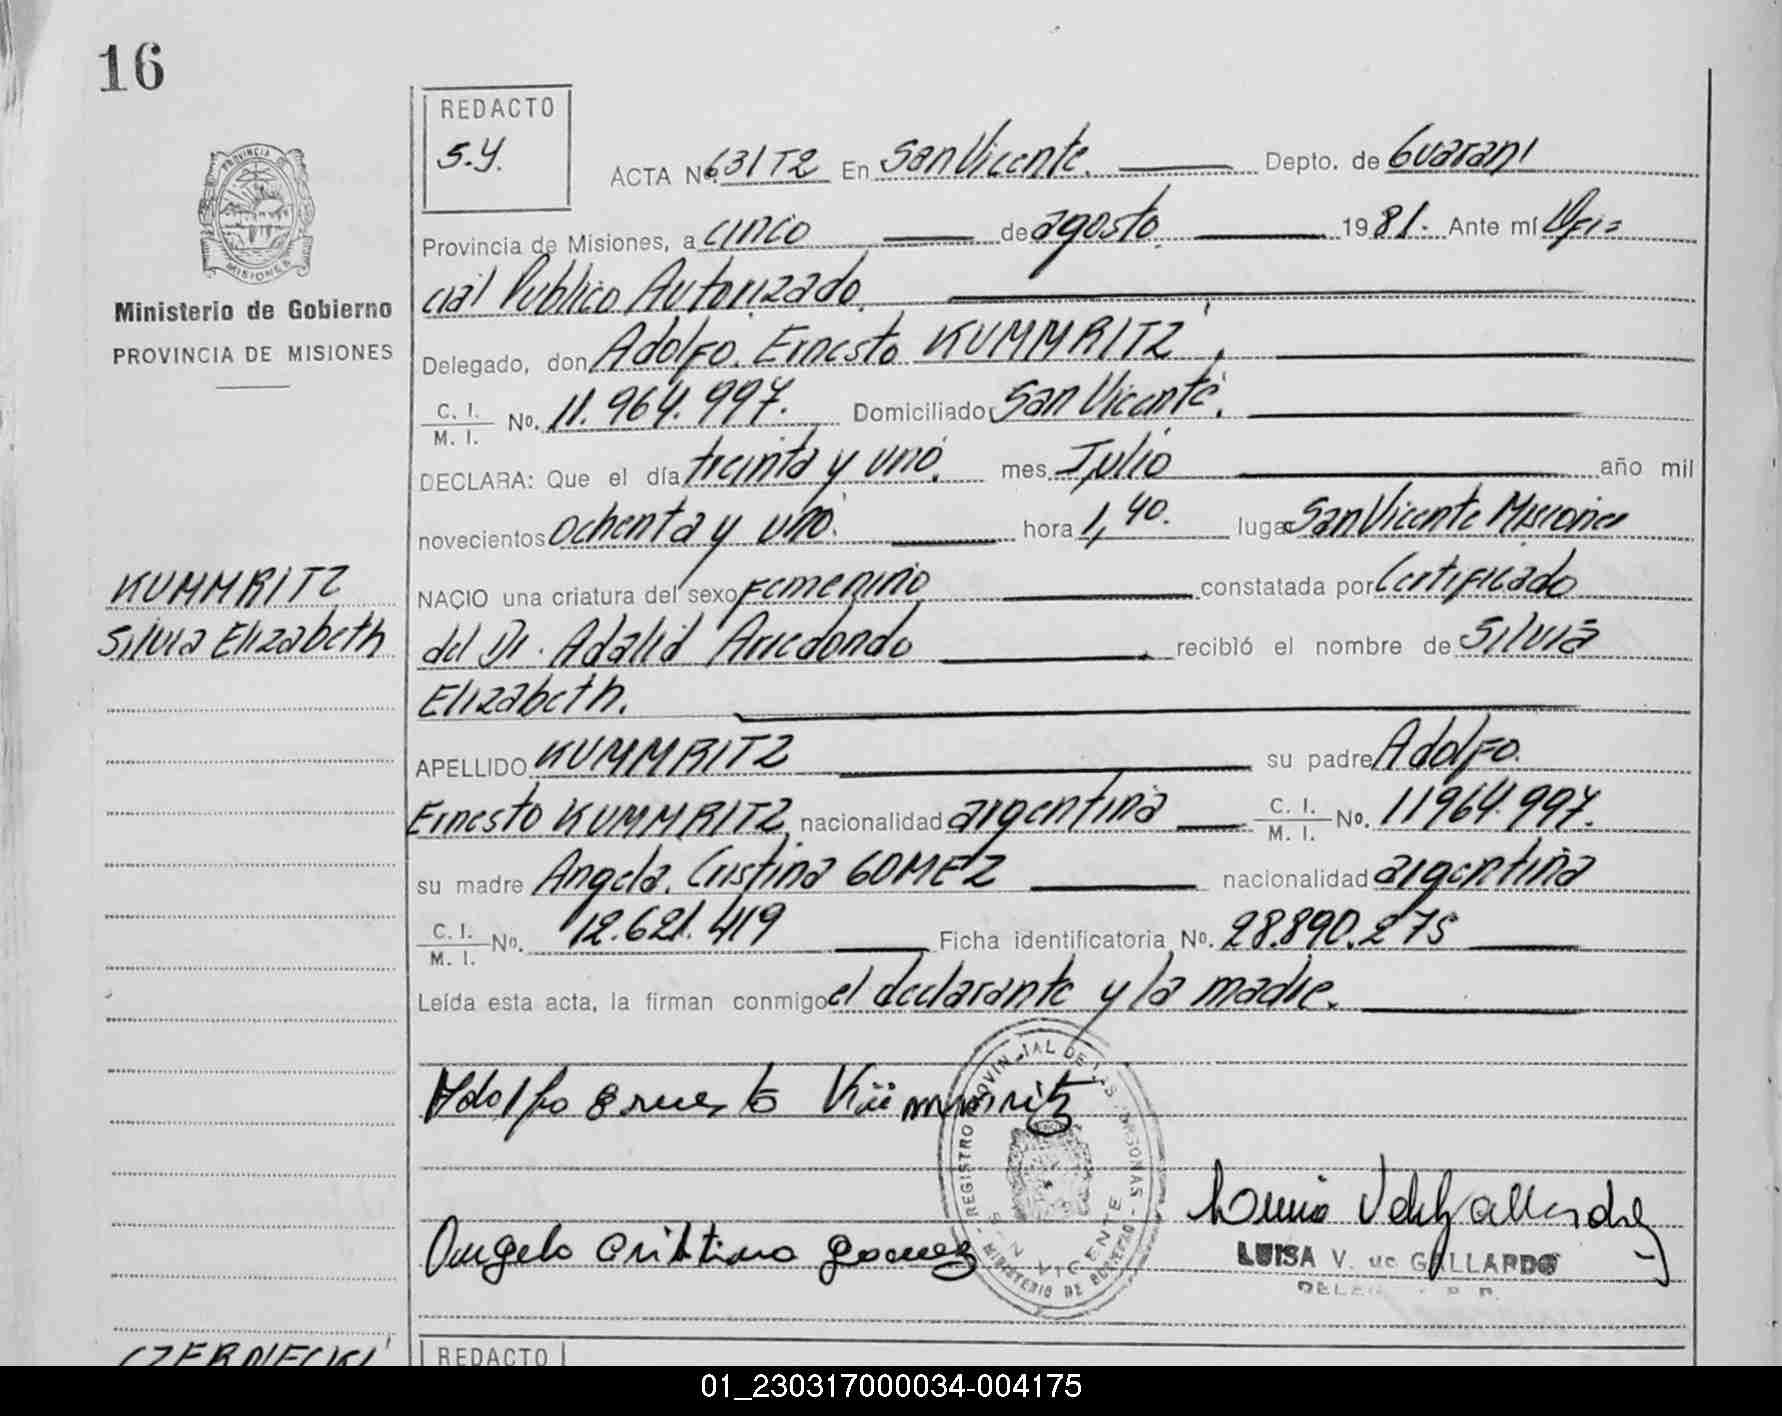 16
REDACTO
S.Y.
ACTA Nº 631T2 En San Vicente. Depto. de Guarani
PROVINCIA DE
MISIONES
Provincia de Misiones, a cinco de agosto 1981. Ante mí Ofi=
cial Publico Autorizado
Ministerio de Gobierno
PROVINCIA DE MISIONES
Delegado, don Adolfo. Ernesto KUMMRITZ,
C. I. / M. I. No. 11.964.997. Domiciliado San Vicente.
DECLARA: Que el día treinta y uno. mes Julio año mil
novecientos ochenta y uno. hora 1,40. lugar San Vicente Misiones
KUMMRITZ
Silvia Elizabeth
NACIO una criatura del sexo Femenino constatada por Certificado
del Dr. Adalid Arredondo recibió el nombre de Silvia
Elizabeth.
APELLIDO KUMMRITZ su padre Adolfo.
Ernesto KUMMRITZ, nacionalidad argentina C. I. / M. I. No. 11964.997.
su madre Angela. Cristina GOMEZ nacionalidad argentina
C. I. / M. I. No. 12.621.419 Ficha identificatoria No. 28.890.275
Leída esta acta, la firman conmigo el declarante y la madre.
Adolfo Ernesto Kümmritz
REGISTRO PROVINCIAL DE LAS PERSONAS - MINISTERIO DE GOBIERNO -
SAN VICENTE
Angela Cristina Gomez
LUISA V. de GALLARDO
CZERNIECKI
REDACTO
01_230317000034-004175